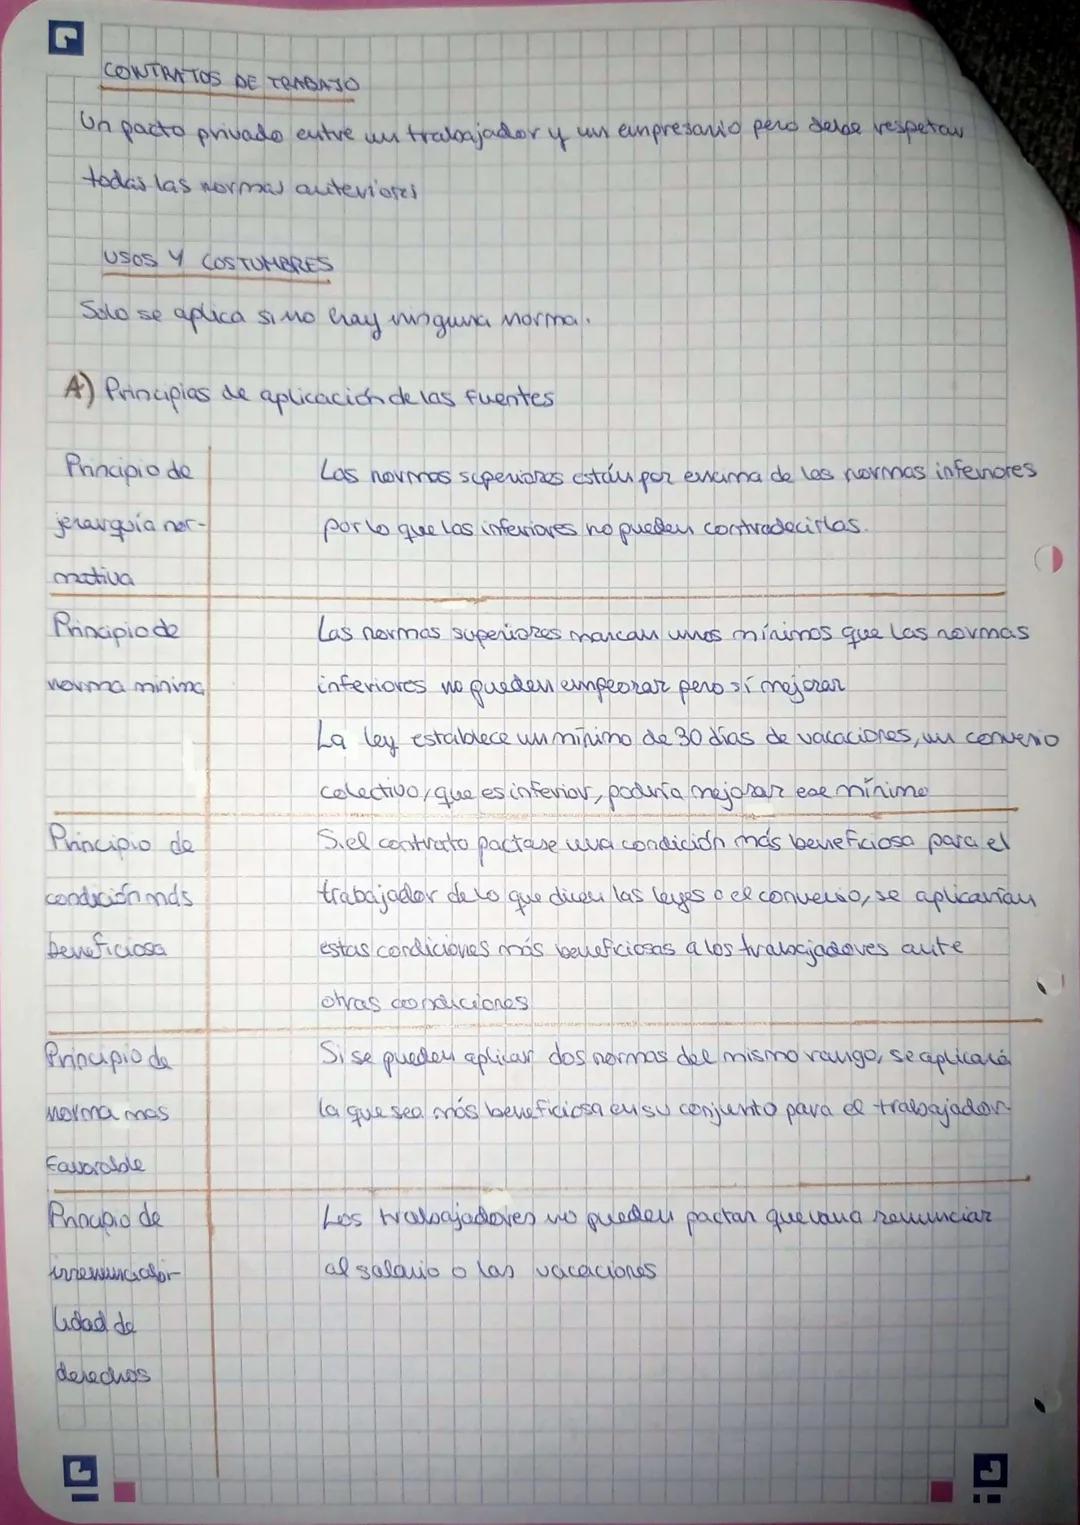 CONTRATOS DE TRABAJO
Un pacto privado entre un trabajador y un empresario pero debe respetar
todas las normas anteriores
USOS Y COSTUMBRES
Solo se aplica si no hay ninguna norma.
A) Principios de aplicación de las fuentes
Principio de
jerarquía nor-
mativa
Las normas superiores están por encima de las normas inferiores
por lo que las inferiores no pueden contradecirlas.
Principio de
norma minima
Las normas superiores marcan unos mínimos que las normas
inferiores no pueden empeorar pero sí mejorar
La ley establece un mínimo de 30 días de vacaciones, un convenio
colectivo, que es inferior, podría mejorar ese mínimo
Principio de
condición más
beneficiosa
Si el contrato pactase una condición más beneficiosa para el
trabajador de lo que dicen las leyes o el convenio, se aplicarían
estas condiciones más beneficiosas a los trabajadores ante
otras condiciones
Principio de
norma mas
favorable
Si se pueden aplicar dos normas del mismo rango, se aplicará
la que sea más beneficiosa en su conjunto para el trabajador
Principio de
irrenunciabi-
lidad de
derechos
Los trabajadores no pueden pactar que van a renunciar
al salario o las vacaciones